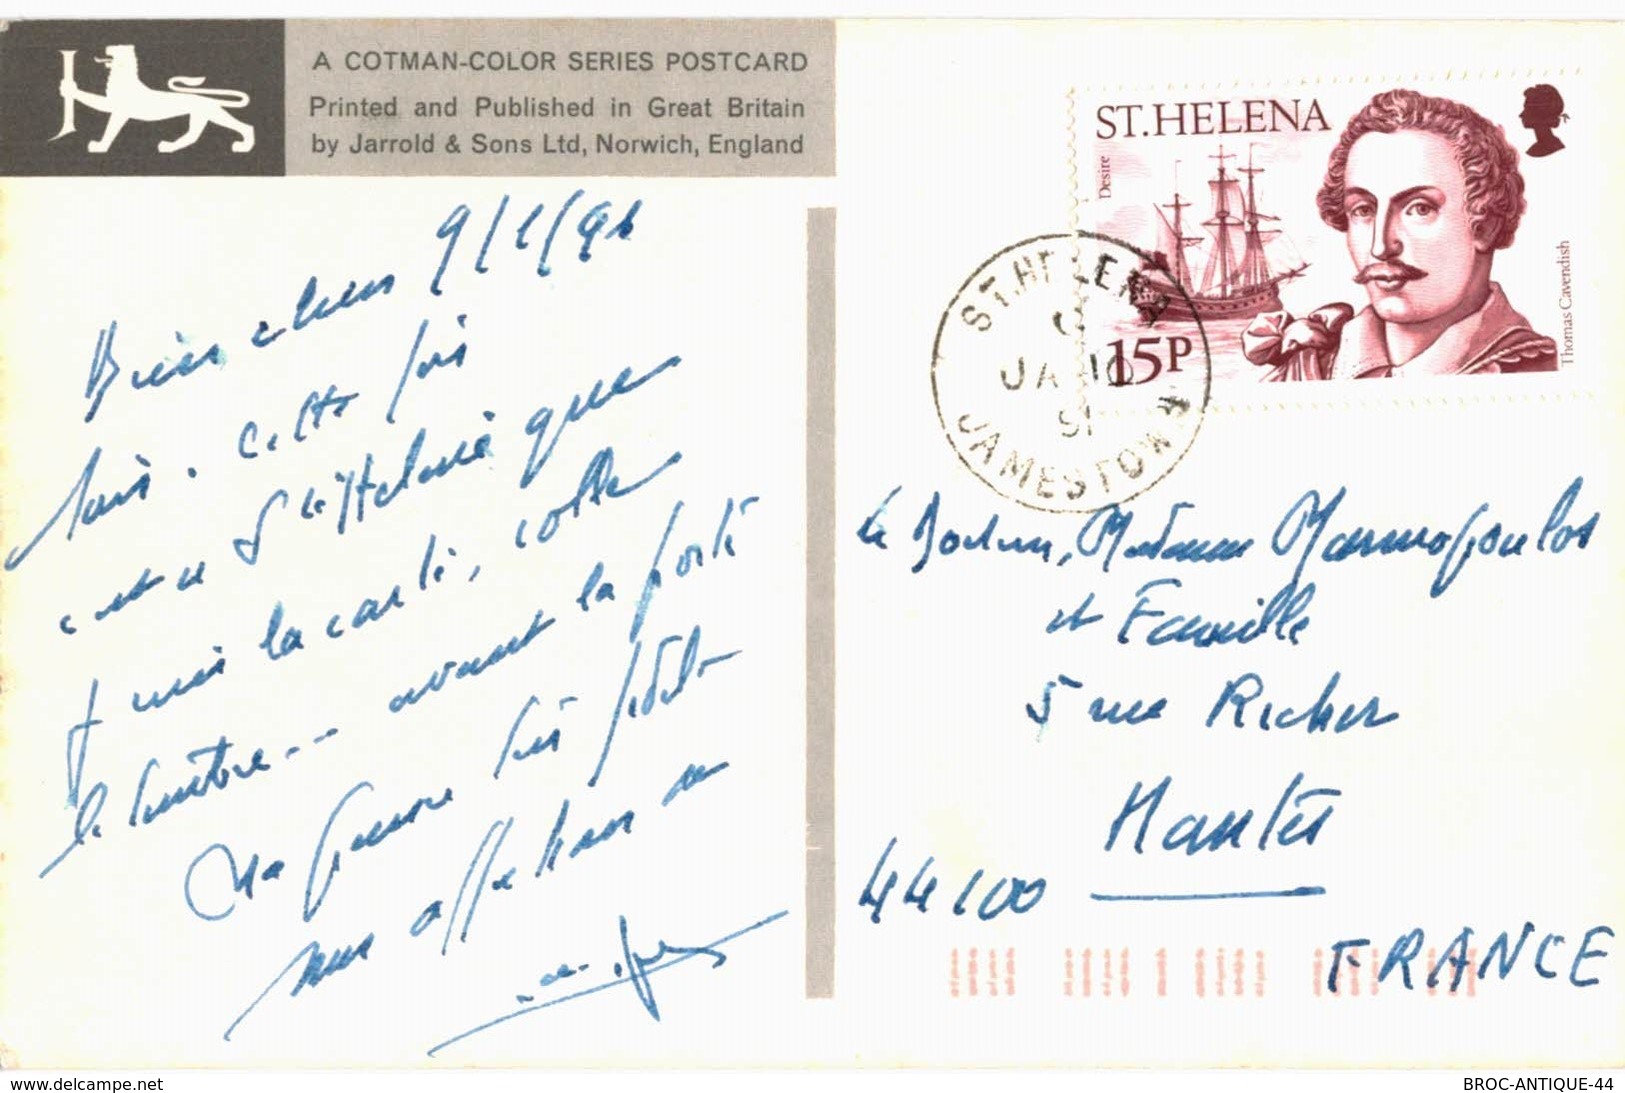 A COTMAN-COLOR SERIES POSTCARD
Printed and Published in Great Britain
by Jarrold & Sons Ltd, Norwich, England
9/1/91
Bien chers
Amis. Cette fois
c'est de Ste Hélène que
je mis la carte, cotté
le timbre... avant la porte
nos affections
ST.HELENA
Desire
Thomas Cavendish
15P
ST. HELENA
C
JA 10
91
JAMESTOWN
le Docteur, Madame Marmopoulos
et Famille
5 rue Richer
Nantes
44100
FRANCE
www.delcampe.net
BROC-ANTIQUE-44